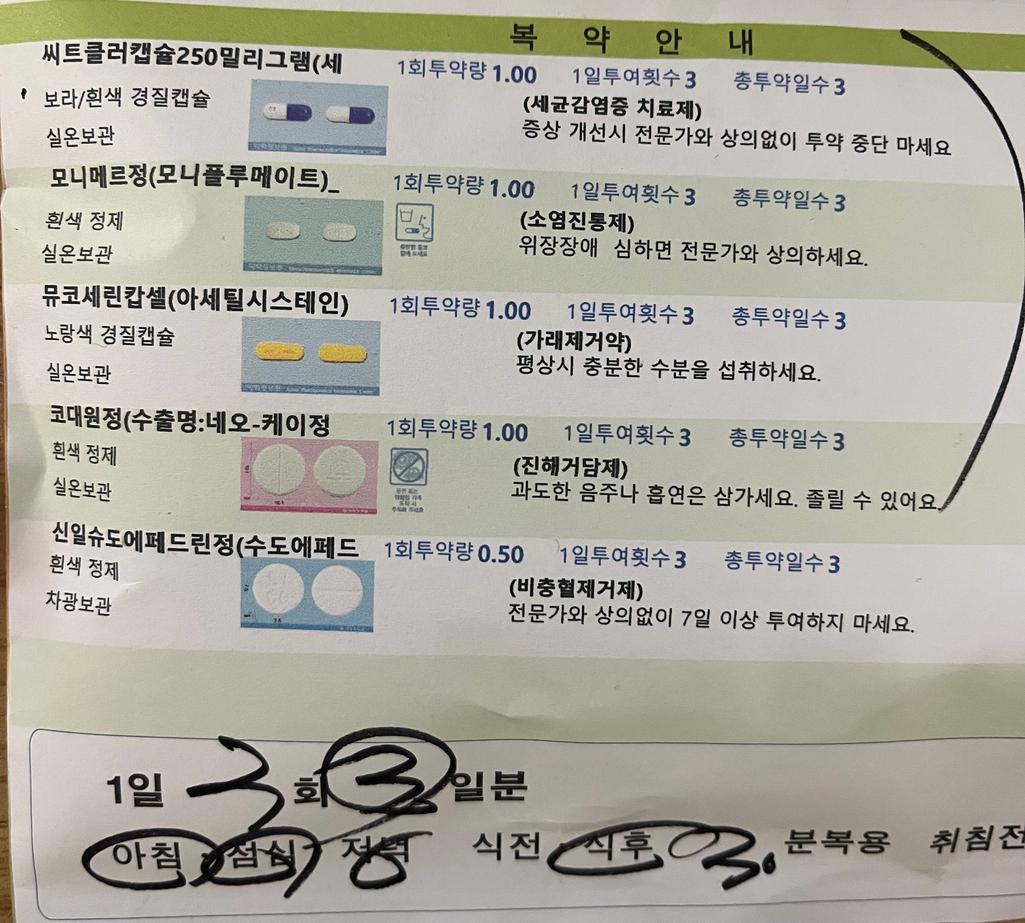 복 약 안 내
씨트클러캡슐250밀리그램(세 1회투약량 1.00 1일투여횟수 3 총투약일수 3
보라/흰색 경질캡슐 (세균감염증 치료제)
실온보관 증상 개선시 전문가와 상의없이 투약 중단 마세요
모니메르정(모니플루메이트)_ 1회투약량 1.00 1일투여횟수 3 총투약일수 3
흰색 정제 (소염진통제)
실온보관 위장장애 심하면 전문가와 상의하세요.
뮤코세린캅셀(아세틸시스테인) 1회투약량 1.00 1일투여횟수 3 총투약일수 3
노랑색 경질캡슐 (가래제거약)
실온보관 평상시 충분한 수분을 섭취하세요.
코대원정(수출명:네오-케이정 1회투약량 1.00 1일투여횟수 3 총투약일수 3
흰색 정제 (진해거담제)
실온보관 과도한 음주나 흡연은 삼가세요. 졸릴 수 있어요.
신일슈도에페드린정(수도에페드 1회투약량 0.50 1일투여횟수 3 총투약일수 3
흰색 정제 (비충혈제거제)
차광보관 전문가와 상의없이 7일 이상 투여하지 마세요.
1일 3 회 3 일분
아침 점심 저녁 식전 식후 30 분복용 취침전